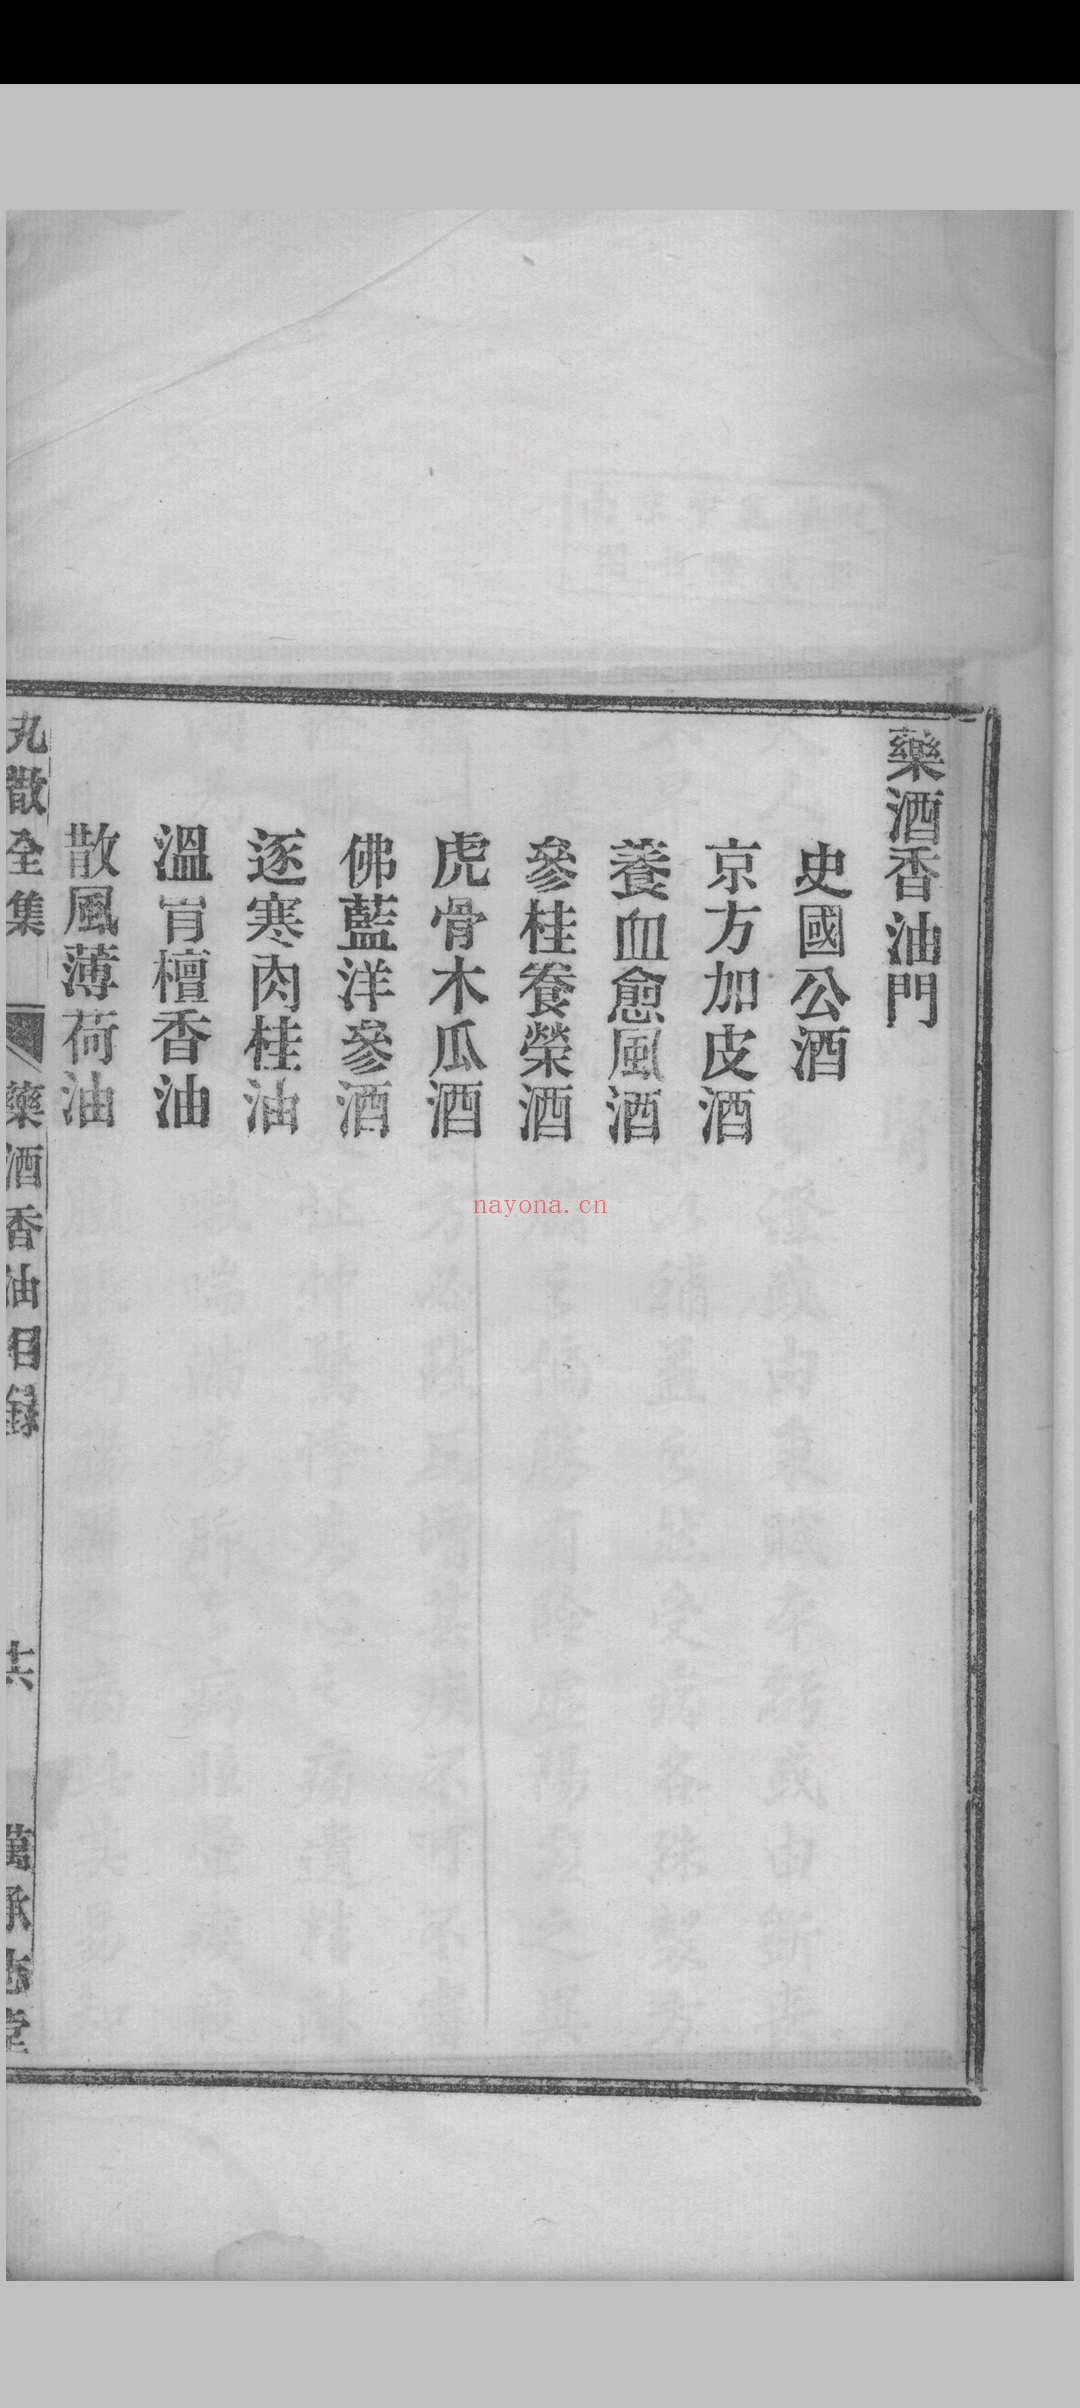 藥酒香油門
史國公酒
京方加皮酒
養血愈風酒
參桂養榮酒
虎骨木瓜酒
佛藍洋參酒
逐寒肉桂油
溫胃檀香油
散風薄荷油
丸散全集
藥酒香油目錄
十六
萬承志堂
nayona.cn